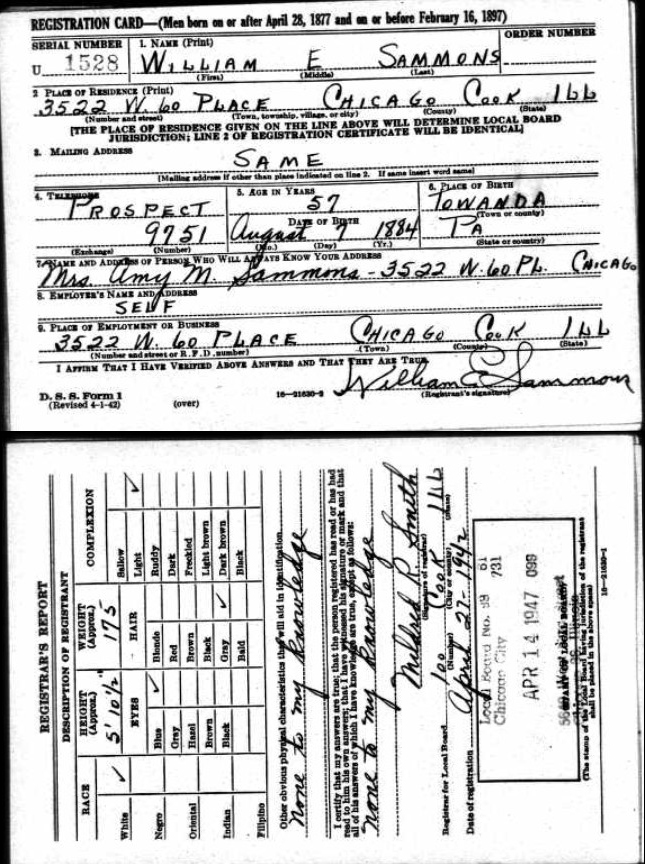 REGISTRATION CARD—(Men born on or after April 28, 1877 and on or before February 16, 1897)
SERIAL NUMBER 1. NAME (Print) ORDER NUMBER
U 1528 WILLIAM E SAMMONS
(First) (Middle) (Last)
2 PLACE OF RESIDENCE (Print)
3522 W. 60 PLACE CHICAGO COOK ILL
(Number and street) (Town, township, village, or city) (County) (State)
[THE PLACE OF RESIDENCE GIVEN ON THE LINE ABOVE WILL DETERMINE LOCAL BOARD
JURISDICTION; LINE 2 OF REGISTRATION CERTIFICATE WILL BE IDENTICAL]
3. MAILING ADDRESS
SAME
[Mailing address if other than place indicated on line 2. If same insert word same]
4. TELEPHONE 5. AGE IN YEARS 6. PLACE OF BIRTH
PROSPECT 57 TOWANDA
DATE OF BIRTH (Town or county)
9751 August 7 1884 PA
(Exchange) (Number) (Mo.) (Day) (Yr.) (State or country)
7. NAME AND ADDRESS OF PERSON WHO WILL ALWAYS KNOW YOUR ADDRESS
Mrs. Amy M. Sammons - 3522 W. 60 PL. CHICAGO
8. EMPLOYER'S NAME AND ADDRESS
SELF
9. PLACE OF EMPLOYMENT OR BUSINESS
3522 W. 60 PLACE CHICAGO COOK ILL
(Number and street or R. F. D. number) (Town) (County) (State)
I AFFIRM THAT I HAVE VERIFIED ABOVE ANSWERS AND THAT THEY ARE TRUE.
William E Sammons
D. S. S. Form 1 16—21630-2 (Registrant's signature)
(Revised 4-1-42) (over)
REGISTRAR'S REPORT
DESCRIPTION OF REGISTRANT
RACE HEIGHT (Approx.) WEIGHT (Approx.) COMPLEXION
5' 10 1/2" 175
EYES HAIR
White ✓ Blue ✓ Blonde Sallow
Negro Gray Red Light ✓
Oriental Hazel Brown Ruddy
Indian Brown Black Dark
Filipino Black Gray ✓ Freckled
Bald Light brown
Dark brown
Black
Other obvious physical characteristics that will aid in identification
none to my knowledge
I certify that my answers are true; that the person registered has read or has had
read to him his own answers; that I have witnessed his signature or mark and that
all of his answers of which I have knowledge are true, except as follows:
none to my knowledge
Mildred R Smith
(Signature of registrar)
Registrar for Local Board 100 Cook Ill
(Number) (City or county) (State)
Date of registration April 27-1942
Local Board No. 99 61
Chicago City 731
APR 14 1947 099
(STAMP OF LOCAL BOARD)
(The stamp of the Local Board having jurisdiction of the registrant
shall be placed in the above space)
16—21630-1